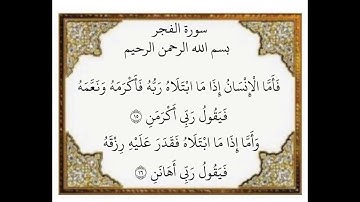 سورة الفجر
بسم الله الرحمن الرحيم
فَأَمَّا الْإِنْسَانُ إِذَا مَا ابْتَلَاهُ رَبُّهُ فَأَكْرَمَهُ وَنَعَّمَهُ
فَيَقُولُ رَبِّي أَكْرَمَنِ ١٥
وَأَمَّا إِذَا مَا ابْتَلَاهُ فَقَدَرَ عَلَيْهِ رِزْقَهُ
فَيَقُولُ رَبِّي أَهَانَنِ ١٦